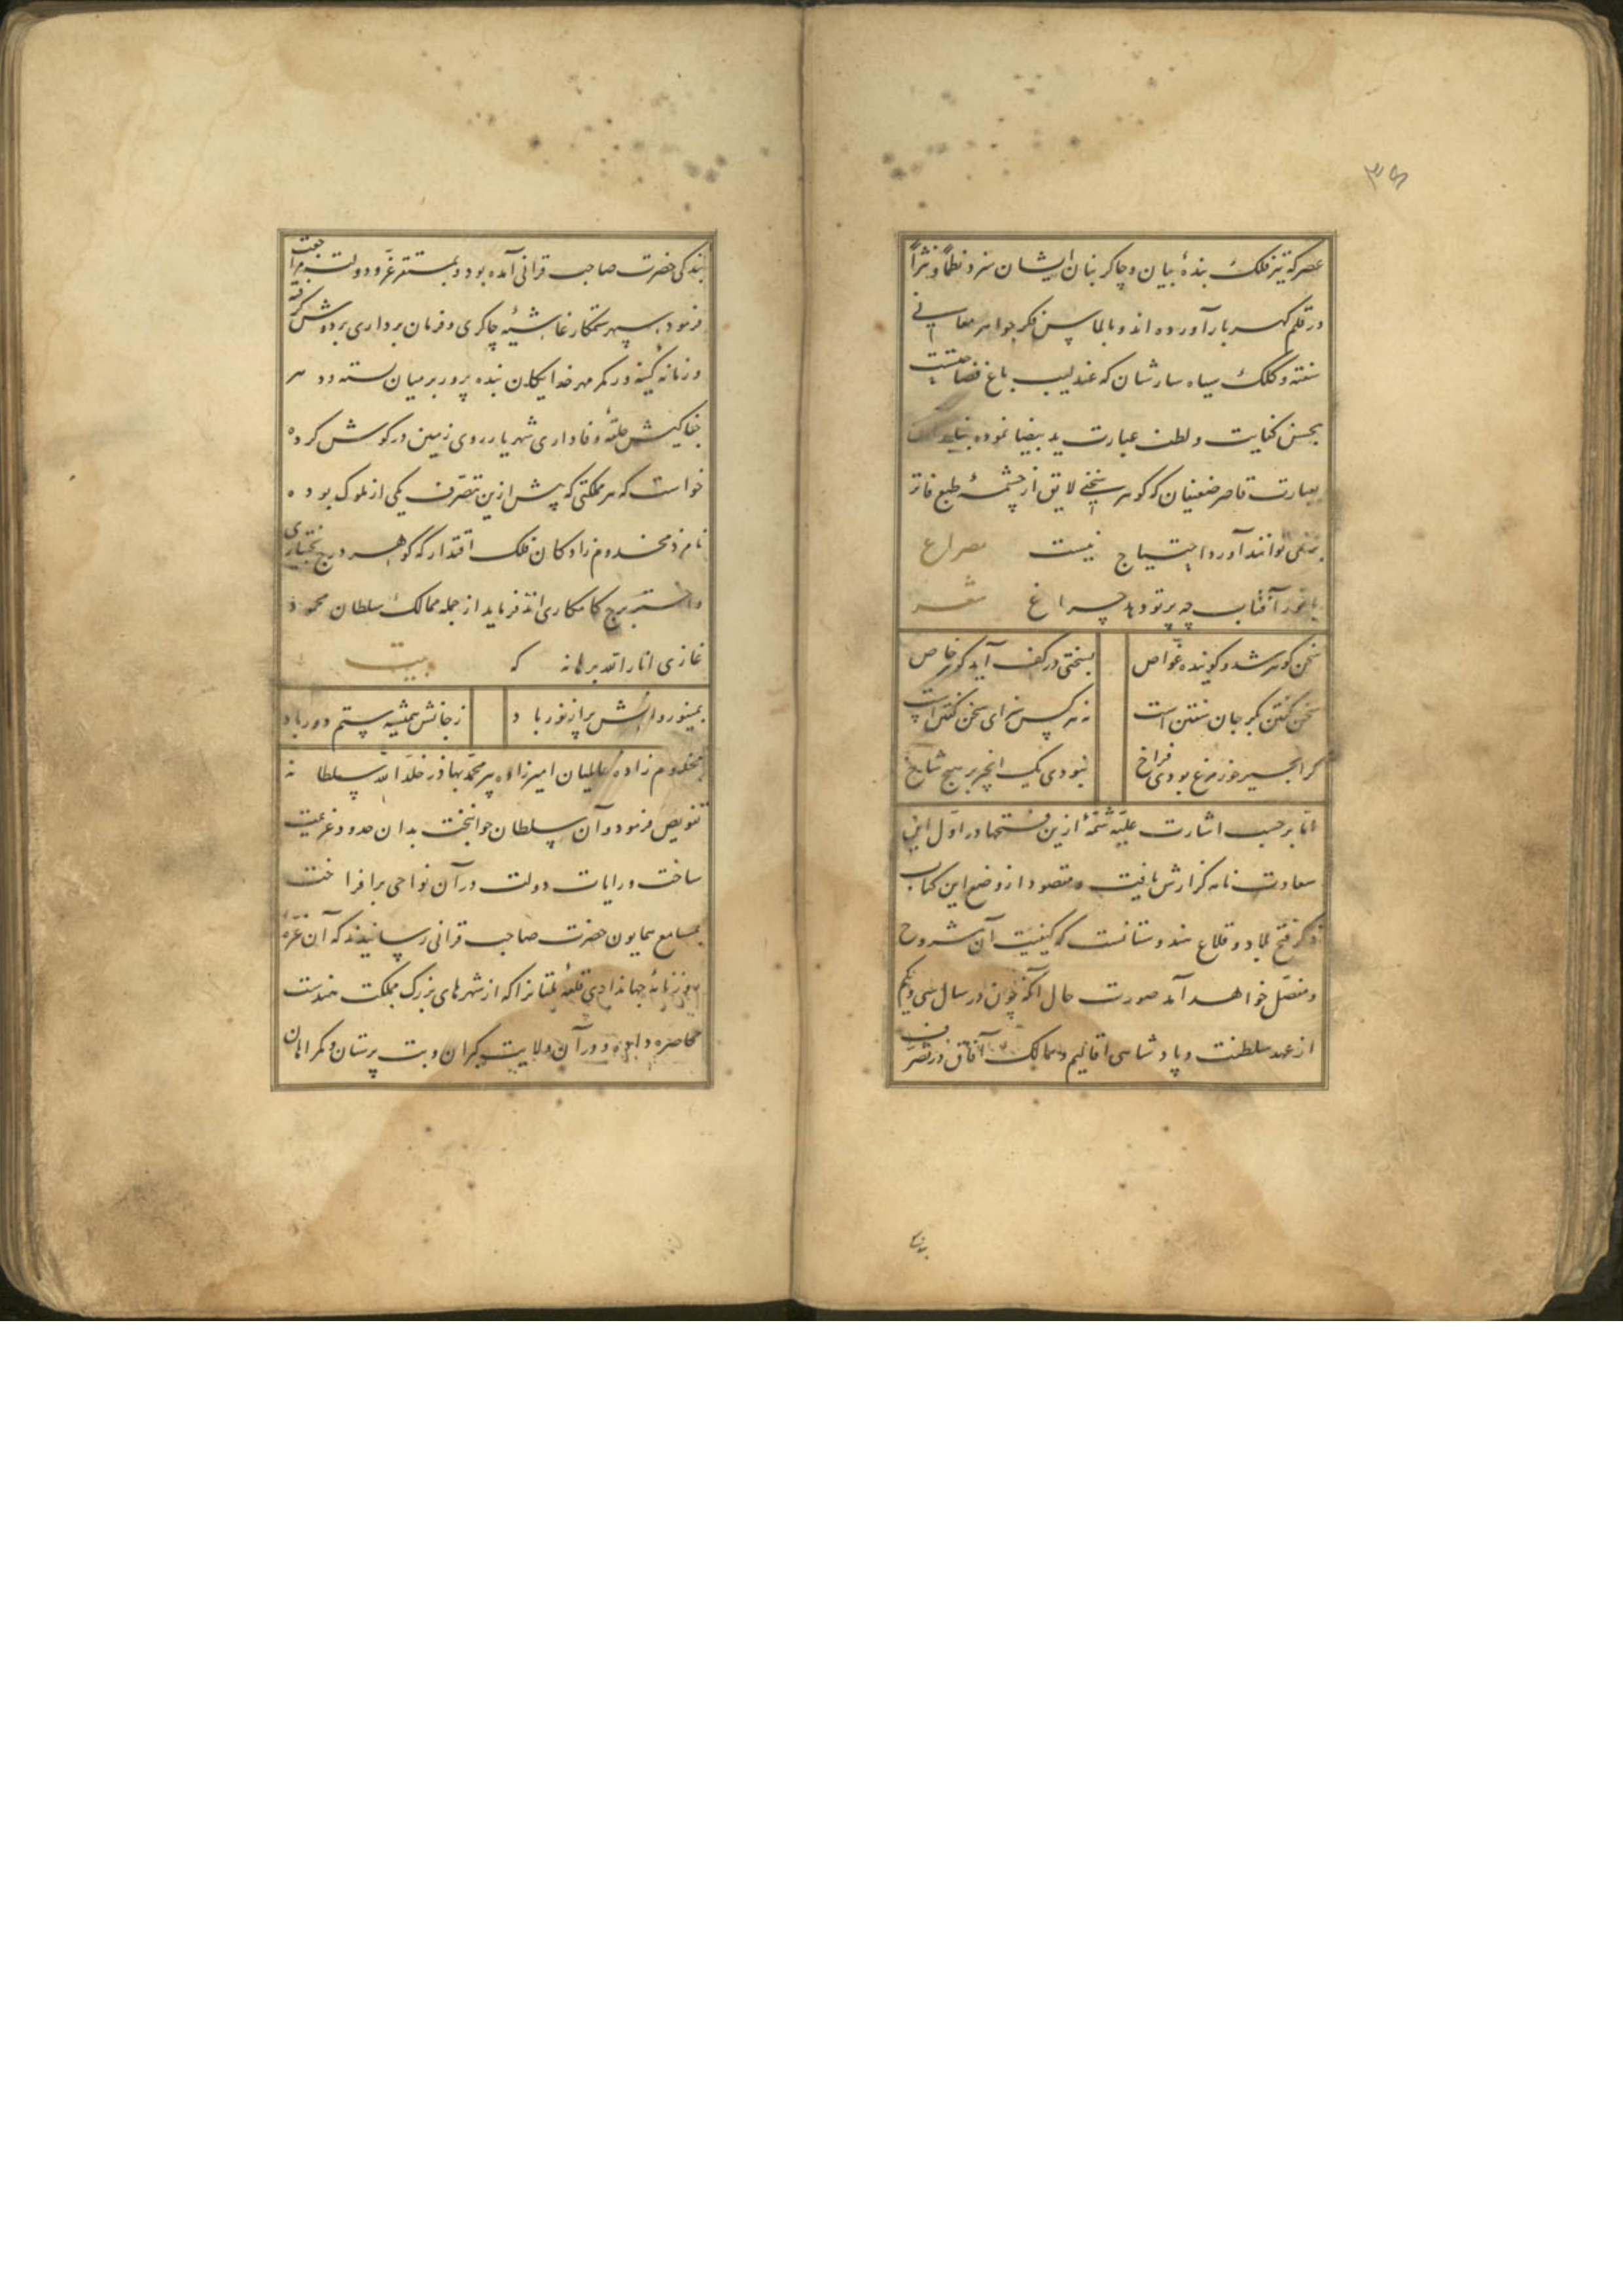 ۳۵
عصر که تیر فلک بندهٔ بیان و چاکر بنان ایشان سزد نظماً و نثراً
در قلم گهربار آورده‌اند و بالماس فکر جواهر معانی
سفته و کلک سیاه سارشان که عندلیب باغ فصاحتست
بحسن کنایت و لطف عبارت ید بیضا نموده
بعبارت قاصر ضعیفان که گوهر سخنی لایق از چشمهٔ طبع فاتر
توانند آورد احتیاج نیست مصراع
با نور آفتاب چه پرتو دهد چراغ شعر
سخن گوهر شد و گوینده غواص بسختی در کف آید گوهر خاص
سخن گفتن بکر جان سفتن است نه هر کس سزای سخن گفتن است
گر انجیر خور مرغ بودی فراخ نبودی یک انجیر بر هیچ شاخ
اما بر حسب اشارت علیّه شمّهٔ ازین فتحها در اول این
سعادت نامه گزارش یافت و مقصود از وضع این کتاب
ذکر فتح بلاد و قلاع هندوستانست که کیفیت آن مشروح
و مفصّل خواهد آمد صورت حال آنکه چون در سال سی و یکم
از عهد سلطنت و پادشاهی اقالیم و ممالک آفاق در تصرف
بندگی
بندگی حضرت صاحب قرانی آمده بود و بمستقر عزّ و دولت مراجعت
فرمود سپهر ستمکار غاشیهٔ چاکری و فرمان برداری بر دوش گرفته
و زمانه کینه‌ور کمر مهر خدایگان بنده پرور بر میان بسته و دهر
جفاکیش حلقهٔ وفاداری شهریار روی زمین در گوش کرده
خواست که هر مملکتی که پیش ازین بتصرف یکی از ملوک بوده
نامزد مخدوم زادگان فلک اقتدار که گوهر درج بختیاری
و اختر برج کامکاری‌اند فرماید از جمله ممالک سلطان محمود
غازی انار الله برهانه که بیت
بمینو روانش پر از نور باد ز جانش همیشه ستم دور باد
بمخدوم زاده عالمیان امیرزاده پیر محمد بهادر خلّد الله سلطانه
تفویض فرمود و آن سلطان جوانبخت بدان حدود عزیمت
ساخت و رایات دولت در آن نواحی برافراخت
بمسامع همایون حضرت صاحب قرانی رسانیدند که آن غرّهٔ
جهانداری قلعهٔ ملتانرا که از شهرهای بزرگ مملکت هندست
محاصره داده و در آن ولایت گبران و بت پرستان و گمراهان